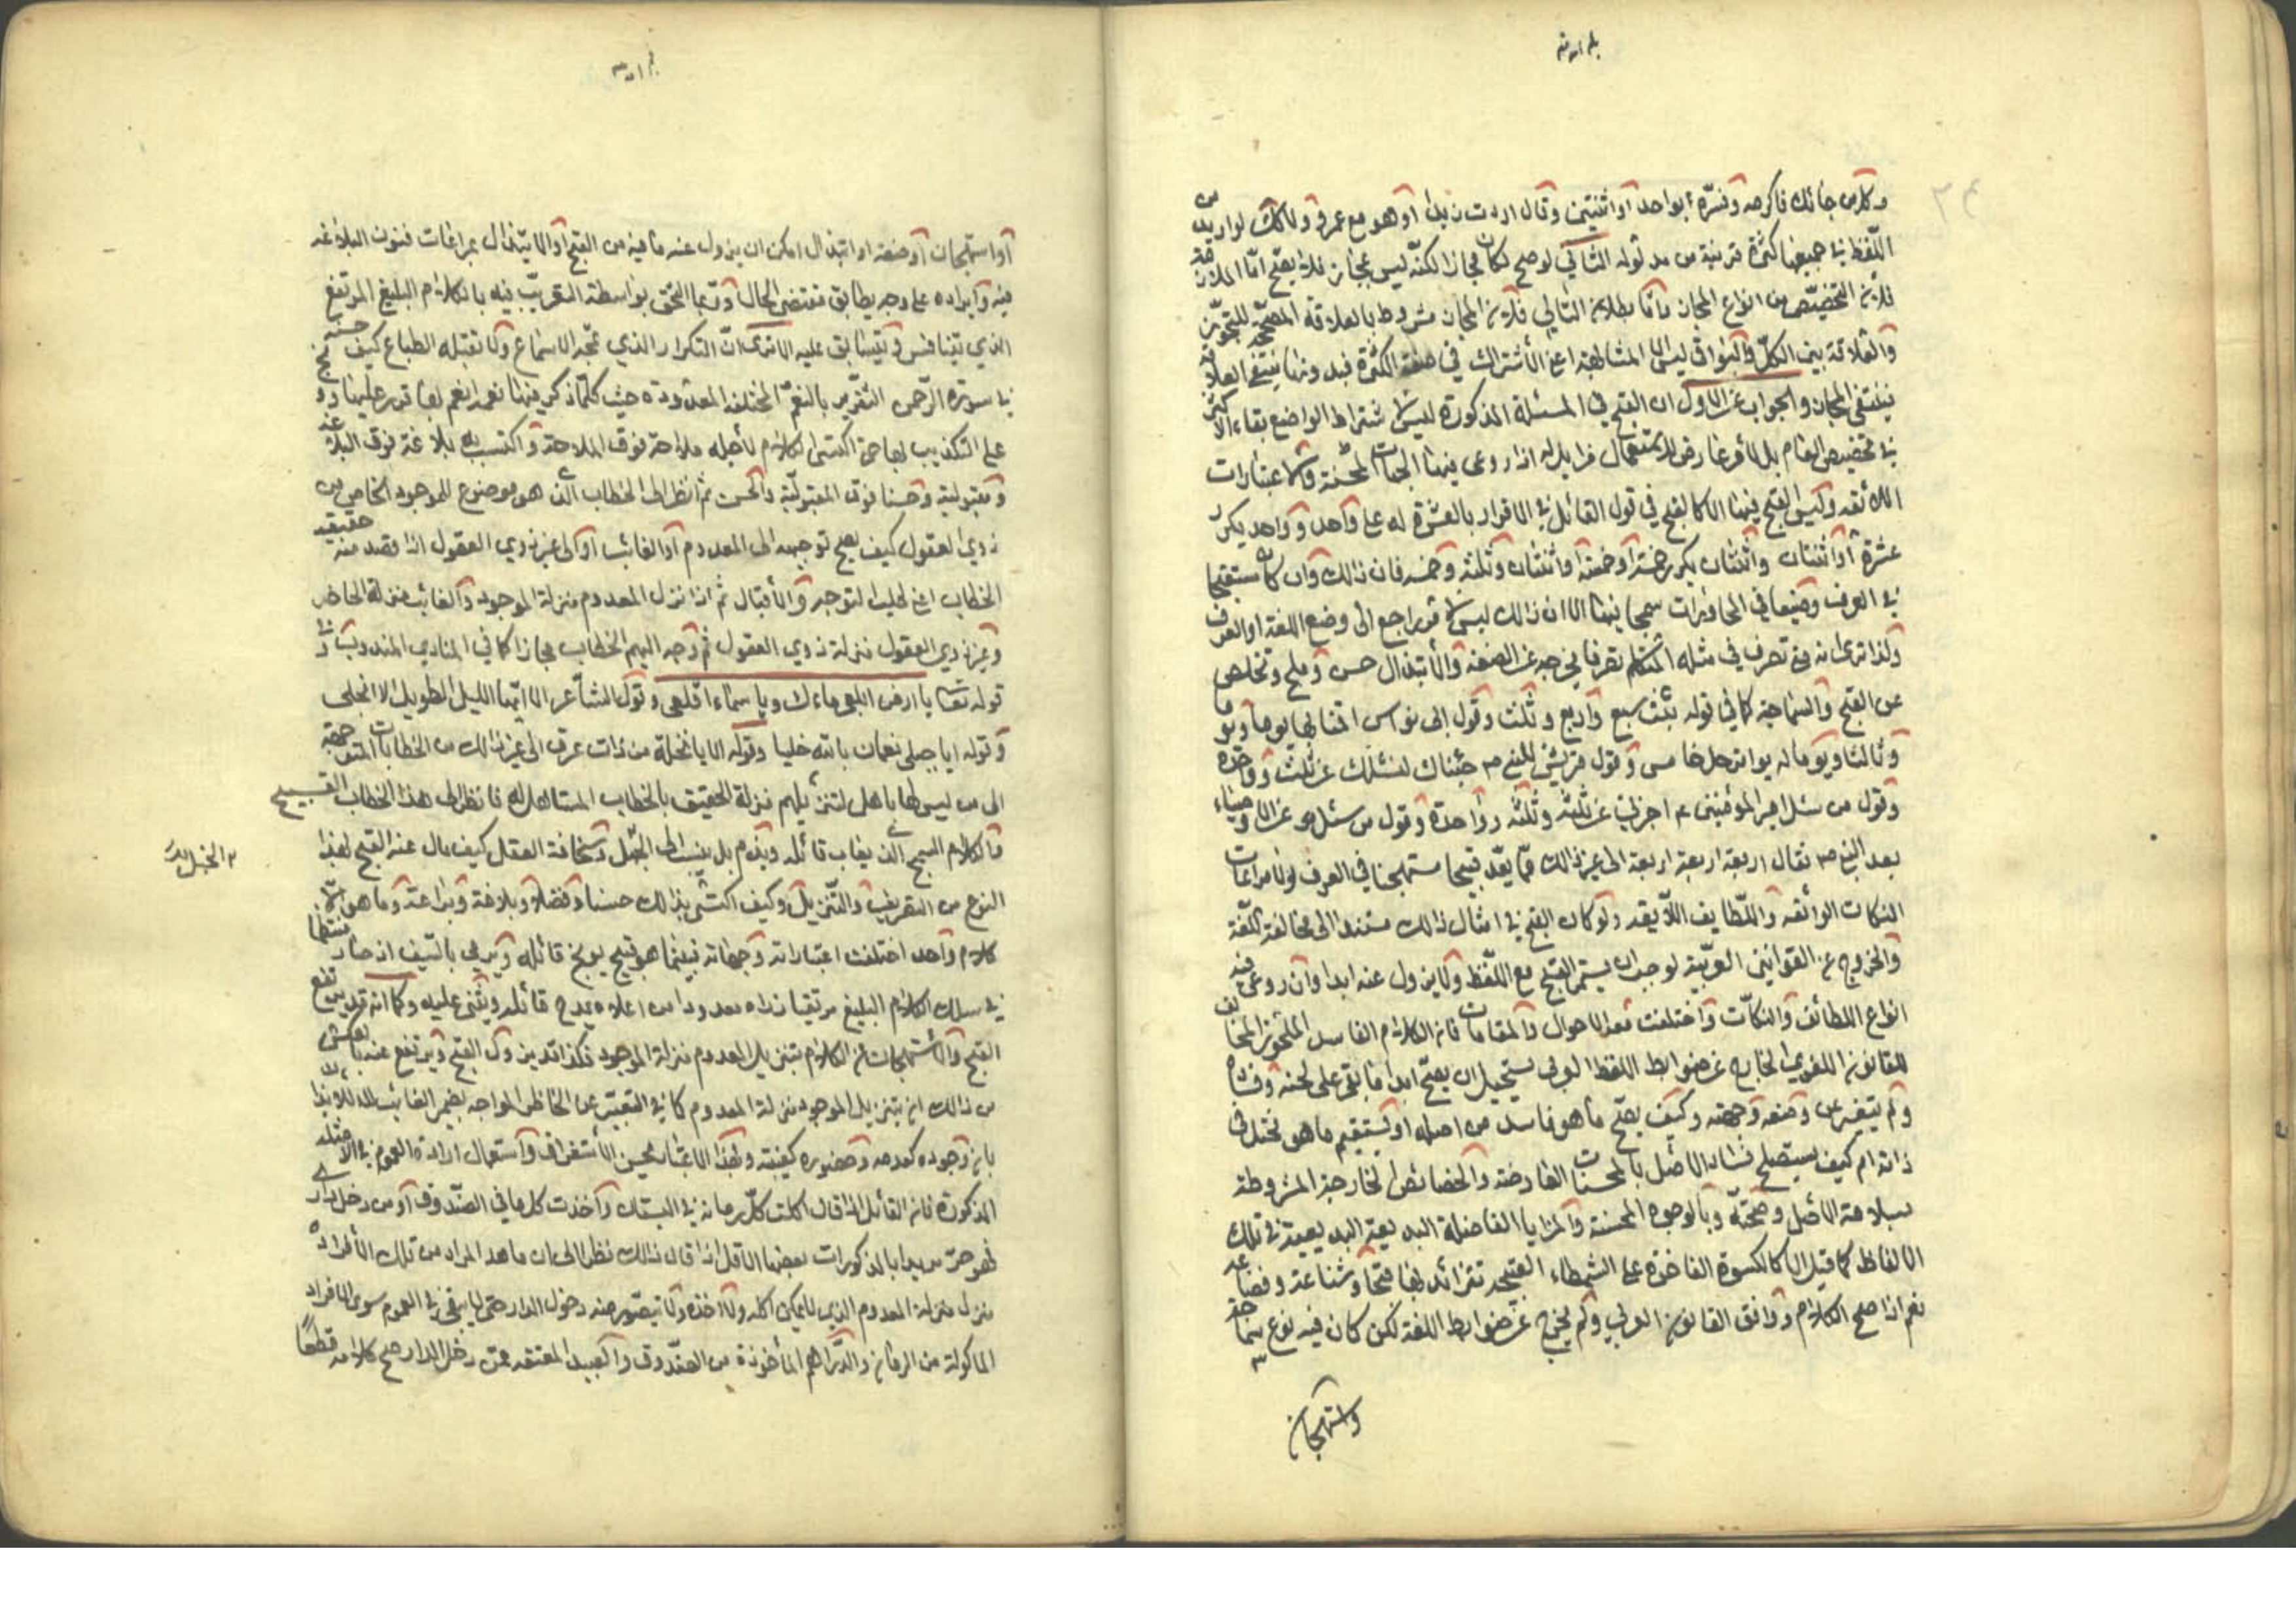 بلغ
وكل من جائك فاكرمه وفسّره بواحد او اثنين وقال اردت زيدا او هو مع عمرو ولا كك لو اريد من
اللفظ في جميعها كثرة قريبة من مدلوله الثاني لو صح لكان مجازا لكنّه ليس بمجاز فلا يصح امّا الملازمة
فلان التخصيص من انواع المجاز وامّا بطلان التالي فلان المجاز مشروط بالعلاقة المصححة للتجوّز
والعلاقة بين الكلّ والبواقي ليس الا المشابهة اعني الاشتراك في صفة الكثرة فبدونها ينتفي العلاقة
فينتفي المجاز والجواب عن الاول ان القبح في المسئلة المذكورة ليس لاشتراط الواضع بقاء الاكثر
في تخصيص العام بل لأمر عارض للاستعمال فزايل له اذا روعى فيها الجهات المحسّنة والاعتبارات
اللائقه وليس القبح فيها الا كالقبح في قول القائل في الاقرار بالعشرة له علي واحد وواحد يكرر
عشرة او اثنتان واثنتان يكرر خمسة او خمسة واثنتان وثلثة وخمسه فان ذالك وان كان مستقبحا
في العرف وضيعا في المحاورات سمجا فيها الا ان ذالك ليس لأمر راجع الى وضع اللغة او العرف
ولذا ترى انه متى تصرف في مثله المتكلم تصرفا يخرجه عن الضعة والابتذال حسن وملح وتخلص
عن القبح والسماجة كما في قوله بنت سبع واربع وثلث وقول ابي نواس اقمنا بها يوما ويوما
وثالثا ويوما له يوم الترحل خامس وقول قريش للنبي ص جئناك لنسئلك عن ثلث وواحدة
وقول من سئل امير المؤمنين ع اخبرني عن ثلثة وثلثة وواحدة وقول من سئل هو عن الاوصياء
بعد النبي ص فقال اربعة اربعة اربعة الى غير ذالك ممّا يعدّ قبيحا مستهجنا في العرف لولا مراعات
النكات الرائقه واللّطايف اللّايقه ولو كان القبح في امثال ذالك مستندا الى مخالفة اللّغة
والخروج عن القوانين العربيّة لوجب ان يستمر القبح مع اللّفظ ولا يزول عنه ابدا وان روعى فيه
انواع اللطائف والنكات واختلفت معه الاحوال والمقامات فان الكلام الفاسد الملحون المخالف
للقانون اللغوي الخارج عن ضوابط اللفظ العربي يستحيل ان يصحّ ابدا ما بقى على لحنه وفساده
ولم يتغير عن وضعه وجهته وكيف يصحّ ما هو فاسد من اصله او يستقيم ما هو مختل في
ذاته ام كيف يستصلح فساد الاصل بالمحسنات العارضة والخصائص الخارجة المشروطة
بسلامة الاصل وصحته وبالوجوه المحسنة والمزايا الفاضلة البديعة البديعية في تلك
الالفاظ كما قيل الا كالكسوة الفاخرة على الشمطاء القبيحه تتزائد بها قبحا وشناعة وفضاعه
نعم اذا صح الكلام ووافق القانون العربي ولم يخرج عن ضوابط اللغة لكن كان فيه نوع سماجة
واستهجان
او استهجان او ضعة او ابتذال امكن ان يزول عنه ما فيه من القبح والابتذال بمراعات فنون البلاغه
فيه وايراده على وجه يطابق مقتضى الحال وربّما التحق بواسطة التقريب فيه بالكلام البليغ المرتفع
الذي يتنافس ويتسابق عليه الا ترى انّ التكرار الذي تمجّه الاسماع ولا تقبله الطباع كيف حسن
في سورة الرّحمن التقرير بالنعم المختلفه المعدودة حيث كلّما ذكر فيها نعمه انعم بها قرر عليها ووبخ
على التكذيب بها حتى اكتسى الكلام لأجله ملاحة فوق الملاحة واكتسب به بلاغة فوق البلاغه
ومقبولية وحسنا فوق المقبوليّة والحسن ثم انظر الى الخطاب الذي هو موضوع للموجود الخاص من
ذوي العقول كيف يصح توجيهه الى المعدوم او الغائب او الى غير ذوي العقول اذا قصد منه حقيقه
الخطاب اعني طلب التوجه والاقبال ثم اذا نزل المعدوم منزلة الموجود والغائب منزلة الحاضر
وغير ذوي العقول منزلة ذوي العقول ثم وجه اليهم الخطاب مجازا كما في المنادي المندوب وفي
قوله تعالى يا ارض ابلعي ماءك ويا سماء اقلعي وقول الشاعر الا ايّها الليل الطويل الا انجلى
وقوله ايا جبلي نعمان بالله خليا وقوله الا يا نخلة من ذات عرق الى غير ذالك من الخطابات المتوجهة
الى من ليس لها باهل لتنزيلهم منزلة الحقيق بالخطاب المستاهل له فانظر الى هذا الخطاب القبيح
والكلام السمج الذي يعاب قائله ويذم بل ينسب الى الجهل وسخافة العقل كيف مال عنه القبح لهذا
النوع من التقريب والتّنزيل وكيف اكتسى بذالك حسنا وفضلا وبلاغة وبراعة وما هو الّا
كلام واحد اختلفت اعتباراته وجهاته فبينما هو قبيح يوبخ قائله ويرمى بالسّيف اذ صار منتظما
في سلك الكلام البليغ مرتقيا ذراه معدودا من اعلاه يمدح قائله ويثنى عليه وكما انه قد يرتفع
القبح والاستهجان عن الكلام بتنزيل المعدوم منزلة الموجود فكذا قد يزول القبح ويرتفع عنه بالعكس
من ذالك اي بتنزيل الموجود منزلة المعدوم كما في التعبير عن الحاضر المواجه بضمير الغائب للايذا
بان وجوده كعدمه وحضوره كغيبته ولهذا الاعتبار يحسن الاستغراق واستعمال اداة العموم في الامثله
المذكورة فان القائل اذا قال اكلت كلّ رمانة في البستان واخذت كل ما في الصّندوق او من دخل داري
فهو حرّ مريدا بالمذكورات بعضها الاقل اذا قال ذالك نظرا الى ان ما عدا المراد من تلك الافراد
منزل منزلة المعدوم الذي لا يمكن اكله ولا اخذه ولا يتصّور منه دخول الدار حتى لا يبقى في العموم سوى الافراد
الماكولة من الرمان والدّراهم المأخوذة من الصندوق والعبيد المعتقه ممّن دخل الدار صح كلامه قطعًا